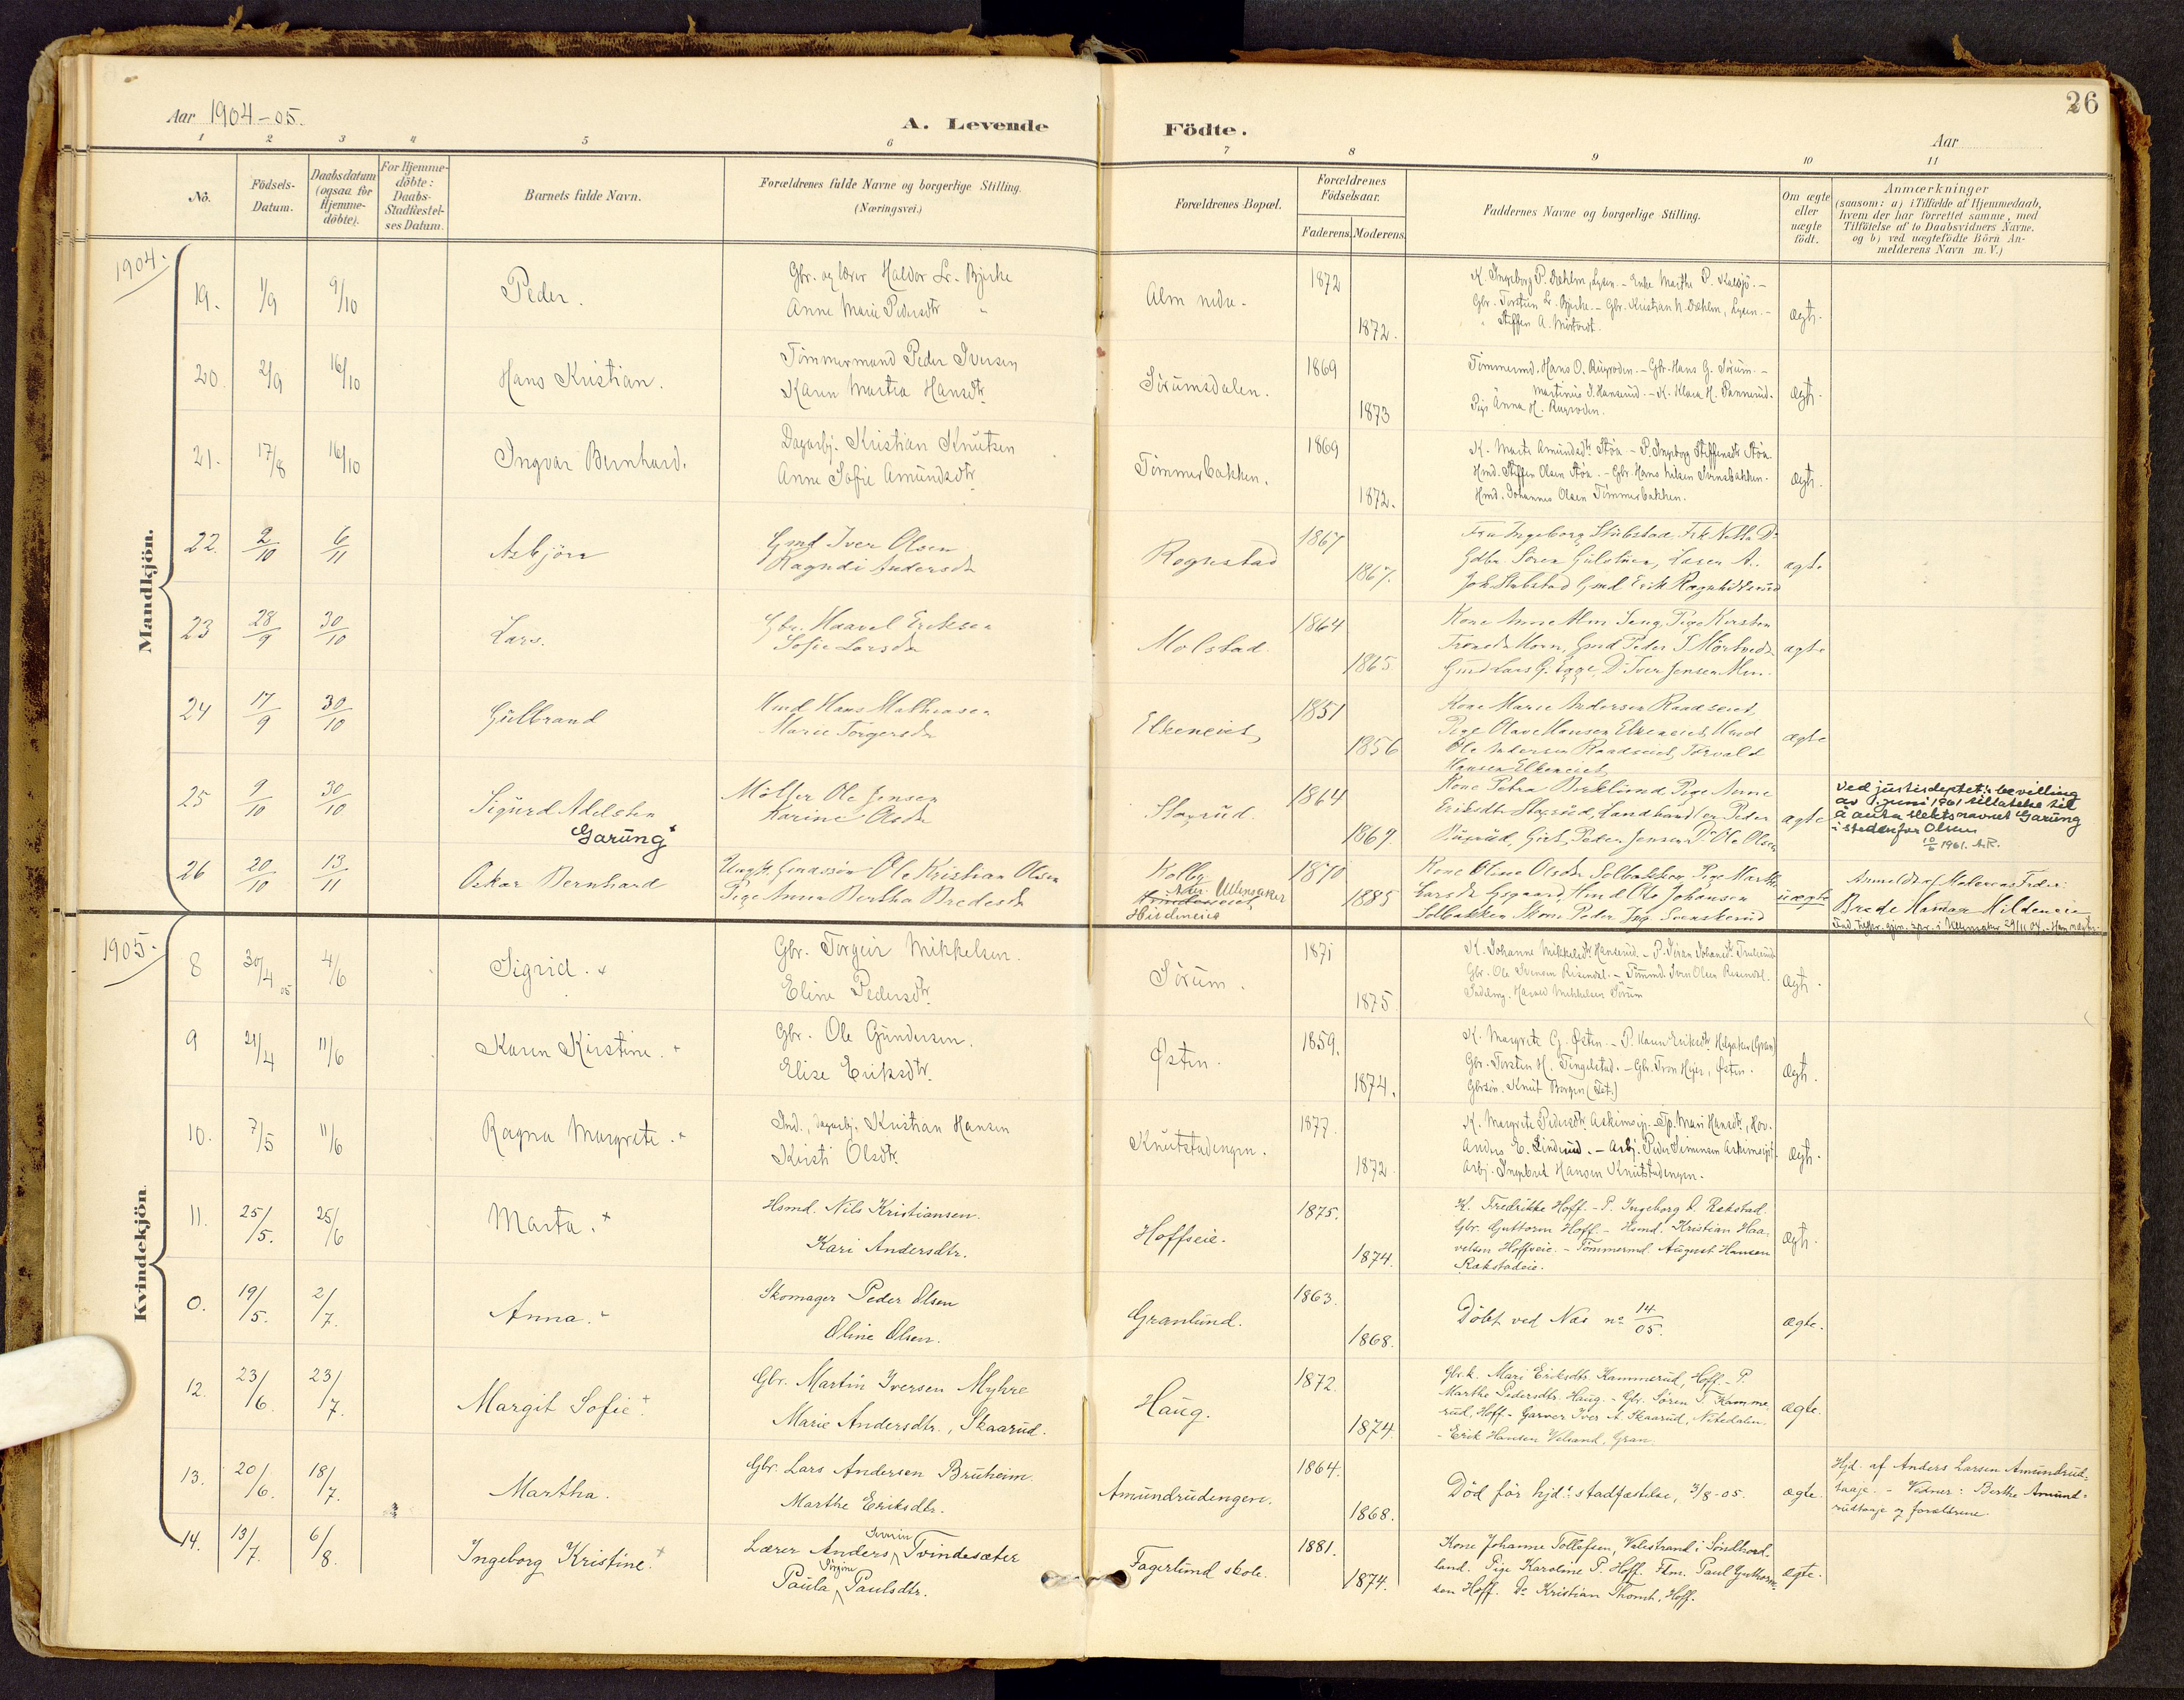 Aar 1904-05.
A. Levende Födte.
Aar
26
1 2 3 4 5 6 7 8 9 10 11
No.
Födsels-Datum.
Daabsdatum (ogsaa for Hjemme-döbte).
For Hjemme-döbte: Daabs-Stadfæstel-ses Datum.
Barnets fulde Navn.
Forældrenes fulde Navne og borgerlige Stilling.
(Næringsvei.)
Forældrenes Bopæl.
Forældrenes Födselsaar.
Faderens. Moderens.
Faddernes Navne og borgerlige Stilling.
Om ægte eller uægte födt.
Anmærkninger
(saasom: a) i Tilfælde af Hjemmedaab,
hvem der har forrettet samme, med
Tilföielse af to Daabsvidners Navne.
og b) ved uægtefödte Börn An-
melderens Navn m. V.)
Mandkjön.
1904.
19. 1/9 9/10 Peder.
Gbr. og lærer Haldor Lr. Bjerke
Anne Marie Pedersdtr
Alm nedre
1872
1872.
K. Ingeborg P. Dæhlen, Lysen. - Enke Marthe P.
Gbr. Torstein Lr. Bjerke. - Gbr. Kristian N. Dæhlen, Lysen. -
Steffen A.
ægt.
20. 2/9 16/10 Hans Kristian.
Tömmermand Peder Iversen
Karen Martia Hansdtr.
Sörumsdalen.
1869
1873
Tömmermd. Hans O. - Gbr. Hans G. Sörum. -
Martinius J. Hanserud. - K. Klara H.
Pige Anna H.
ægt.
21. 17/8 16/10 Ingvar Bernhard.
Dagarbj. Kristian Knutsen
Anne Sofie Amundsdtr
Tömmerbakken.
1869
1872.
K. Marte Amundsdtr. Stöa. - P. Ingeborg Steffensdtr Stöa.
Hmd. Steffen Olsen Stöa. - Gbr. Hans Nilsen Svensbakken.
Hmd. Johannes Olsen Tömmerbakken.
ægt.
22. 2/10 6/11 Asbjörn
Gmd Iver Olsen
Ragndi Andersdtr
Rognstad
1867
1867.
Fru Ingeborg Stubstad, Frk Netta Do
Gdbr Sören
Joh Stubstad Gmd Erik
ægte
23 28/9 30/10 Lars.
Gbr. Haavel Eriksen
Sofie Larsdtr
Molstad.
1864
1865
Kone Anne Alm Jeng, Pige Kirsten
Gmd Peder
Gmd Lars G. Egge, Do Iver Jensen Alm.
ægte
24 17/9 30/10 Gulbrand
Hmd Hans Mathiesen
Marie Torgersdtr
Elkeneiet
1851
1856
Kone Marie Andersen Raadseiet,
Pige Olave Hansen Elkeneiet, Hmd
Ole Andersen Raadseiet, Torvald
Hansen Elkeneiet
ægte
25 9/10 30/10 Sigurd Adelsten
Garung
Möller Ole Jensen
Karine Olsdtr
Slaxrud.
1864
1867.
Kone Petra Birkelund Pige Anne
Eriksdtr Landhandler Peder
Peder Jensen Do Ole Olsen
ægte
Ved justisdeptet's bevilling
av juni 1961 tillatelse til
å anta slektsnavnet Garung
i stedenfor Olsen
10/6 1961.
26 20/10 13/11 Oskar Bernhard
Ole Kristian Olsen
Pige Anna Bertha Bredesdtr
Kolby
Ullensaker
Hildeneiet
1870
1885
Kone Oline Olsdtr Solbakken Pige Marthe
Larsdtr Hmd Ole Johansen
Solbakken Peder
uægte
Anmeldt af Moderens Fader:
Brede Hansen Hildeneie
Kvindekjön
1905.
8 30/4 05 4/6 Sigrid. +
Gbr. Torgeir Mikkelsen.
Eline Pedersdtr.
Sörum.
1871
1875
K. Johanne Mikkelsdtr. Hanserud - P.
Gbr. Ole Svensen Risendal. - Tömmd. Iver Olsen
Harald Mikkelsen Sörum
ægt.
9 21/4 11/6 Karen Kirstine. +
Gbr. Ole Gundersen.
Elise Eriksdtr.
Østen.
1859.
1874.
K. Margrete G. Østen. - P. Karen Eriksdtr. Helgaker (Gran)
Gbr. Torsten H. Tingelstad. - Gbr. Tron Hyer, Østen.
Gbrsön. Knut Borgen (Tst.)
ægt.
10. 7/5 11/6 Ragna Margrete. +
Ind., dagarbj. Kristian Hansen
Kirsti Olsdtr.
Knutstadengen.
1877.
1872
K. Margrete Pedersdtr. Askimeiet. - Tp. Mari Hansdtr., Hov.
Anders E. Linderud. - Arbj. Peder Simensen Askimeiet -
Arbj. Ingebret Hansen Knutstadengen.
ægt.
11. 25/5. 25/6 Marta. +
Hsmd. Nils Kristiansen.
Kari Andersdtr.
Hoffseie.
1875.
1874.
K. Fredrikke Hoff. - P. Ingeborg O. Rekstad.
Gbr. Guttorm Hoff. - Hsmd. Kristian Haa-
velsen Hoffseie. - Tömmermd. August Hansen
Rekstadeie.
ægt.
0. 19/5. 2/7. Anna.
Skomager Peder Olsen
Oline Olsen.
Granlund.
1863.
1868.
Döbt ved Næs no 14/05.
ægte.
12. 23/6 23/7. Margit Sofie. +
Gbr. Martin Iversen Myhre
Marie Andersdtr., Skaarud.
Haug.
1872.
1874.
Gbr.k. Mari Eriksdtr. Kammerud, Hoff. - P.
Marthe Pedersdtr. Haug. - Gbr. Sören T. Kamme-
rud, Hoff. - Garver Iver A. Skaarud, Nitedalen.
- Erik Hansen Velsand, Gran.
ægte.
13. 20/6. 18/7. Martha.
Gbr. Lars Andersen Bruheim.
Marthe Eriksdtr.
Amundrudengen.
1864.
1868.
Död för hjd.s stadfæstelse, 3/8-05.
ægte.
Hjd. af Anders Larsen Amundrud-
haaje. - Vidner: Berthe Amund-
rudhaaje og forældrene.
14. 13/7. 6/8. Ingeborg Kristine. +
Lærer Anders Severin Tvindesæter
Paula Jörgine Paulsdtr.
Fagerlund skole.
1881.
1874.
Kone Johanne Tollefsen, Valestrand i Söndhord-
land. Pige Karoline P. Hoff. Flm. Paul Guttorm-
sen Hoff. Do Kristian Thomt, Hoff.
ægte.